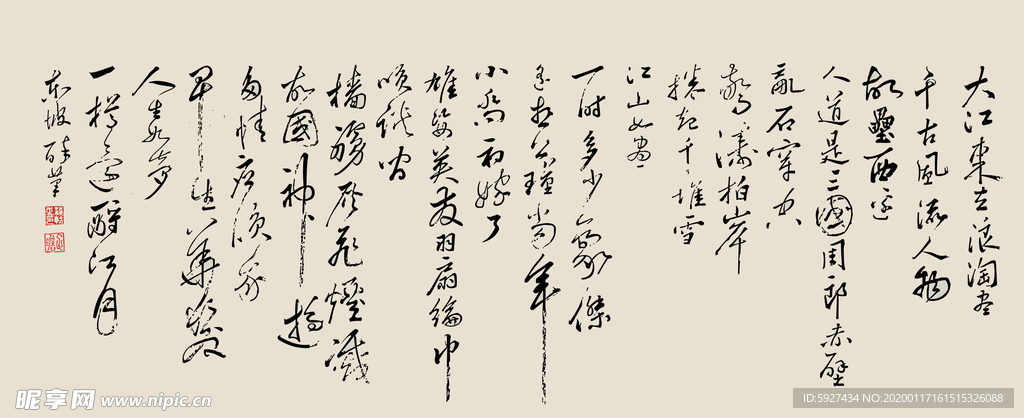 大江東去浪淘盡
千古風流人物
故壘西邊
人道是三國周郎赤壁
亂石穿空
驚濤拍岸
捲起千堆雪
江山如畫
一時多少豪傑
遙想公瑾當年
小喬初嫁了
雄姿英發羽扇綸巾
笑談間
檣艣灰飛煙滅
故國神遊
多情應笑我
早生華髮
人生如夢
一樽還酹江月
東坡醉筆
昵享网 www.nipic.cn
ID:5927434 NO:20200117161515326088